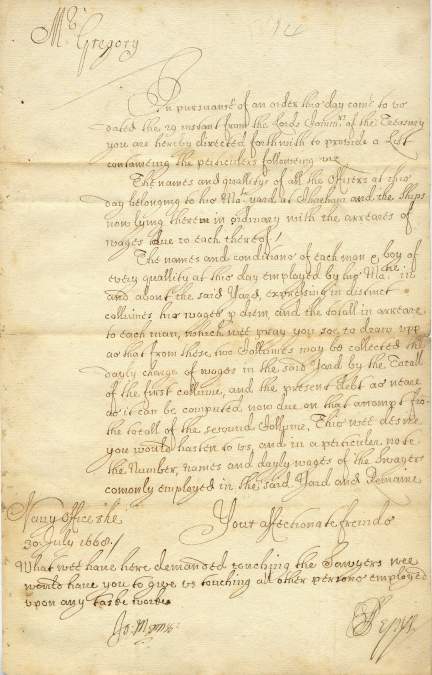 Mr Gregory
14
In pursuance of an order this day come to us
dated the 29 instant from the Lords Commrs of the Treasury
you are hereby directed forthwith to provide a List
containeing the perticulers following viz
The names and quallitys of all the Officers at this
day belonging to his Mats yard at Chatham and the Ships
now lying therein in ordinary with the arreares of
wages due to each thereof
The names and conditions of each man & boy of
every quallity at this day employed by his Matie in
and about the said Yard, expressing in distinct
collumes his wages p diem and the totall in arreare
to each man, which wee pray you soe to draw upp
as that from these two Collumes may be collected the
dayly charge of wages in the said Yard by the Totall
of the first collume, and the present Debt as neare
as it can be computed now due on that accompt fro
the totall of the second Collume, This wee desire
you would hasten to us, and in a perticuler note
the Number, names and dayly wages of the Sawyers
comonly employed in the said Yard and Remaine
Your affectionate freinds
Navy Office the
30 July 1668
What wee have here demanded touching the Sawyers wee
would have you to give us touching all other persons employed
upon any taske worke
Jo: Mennes
S Pepys